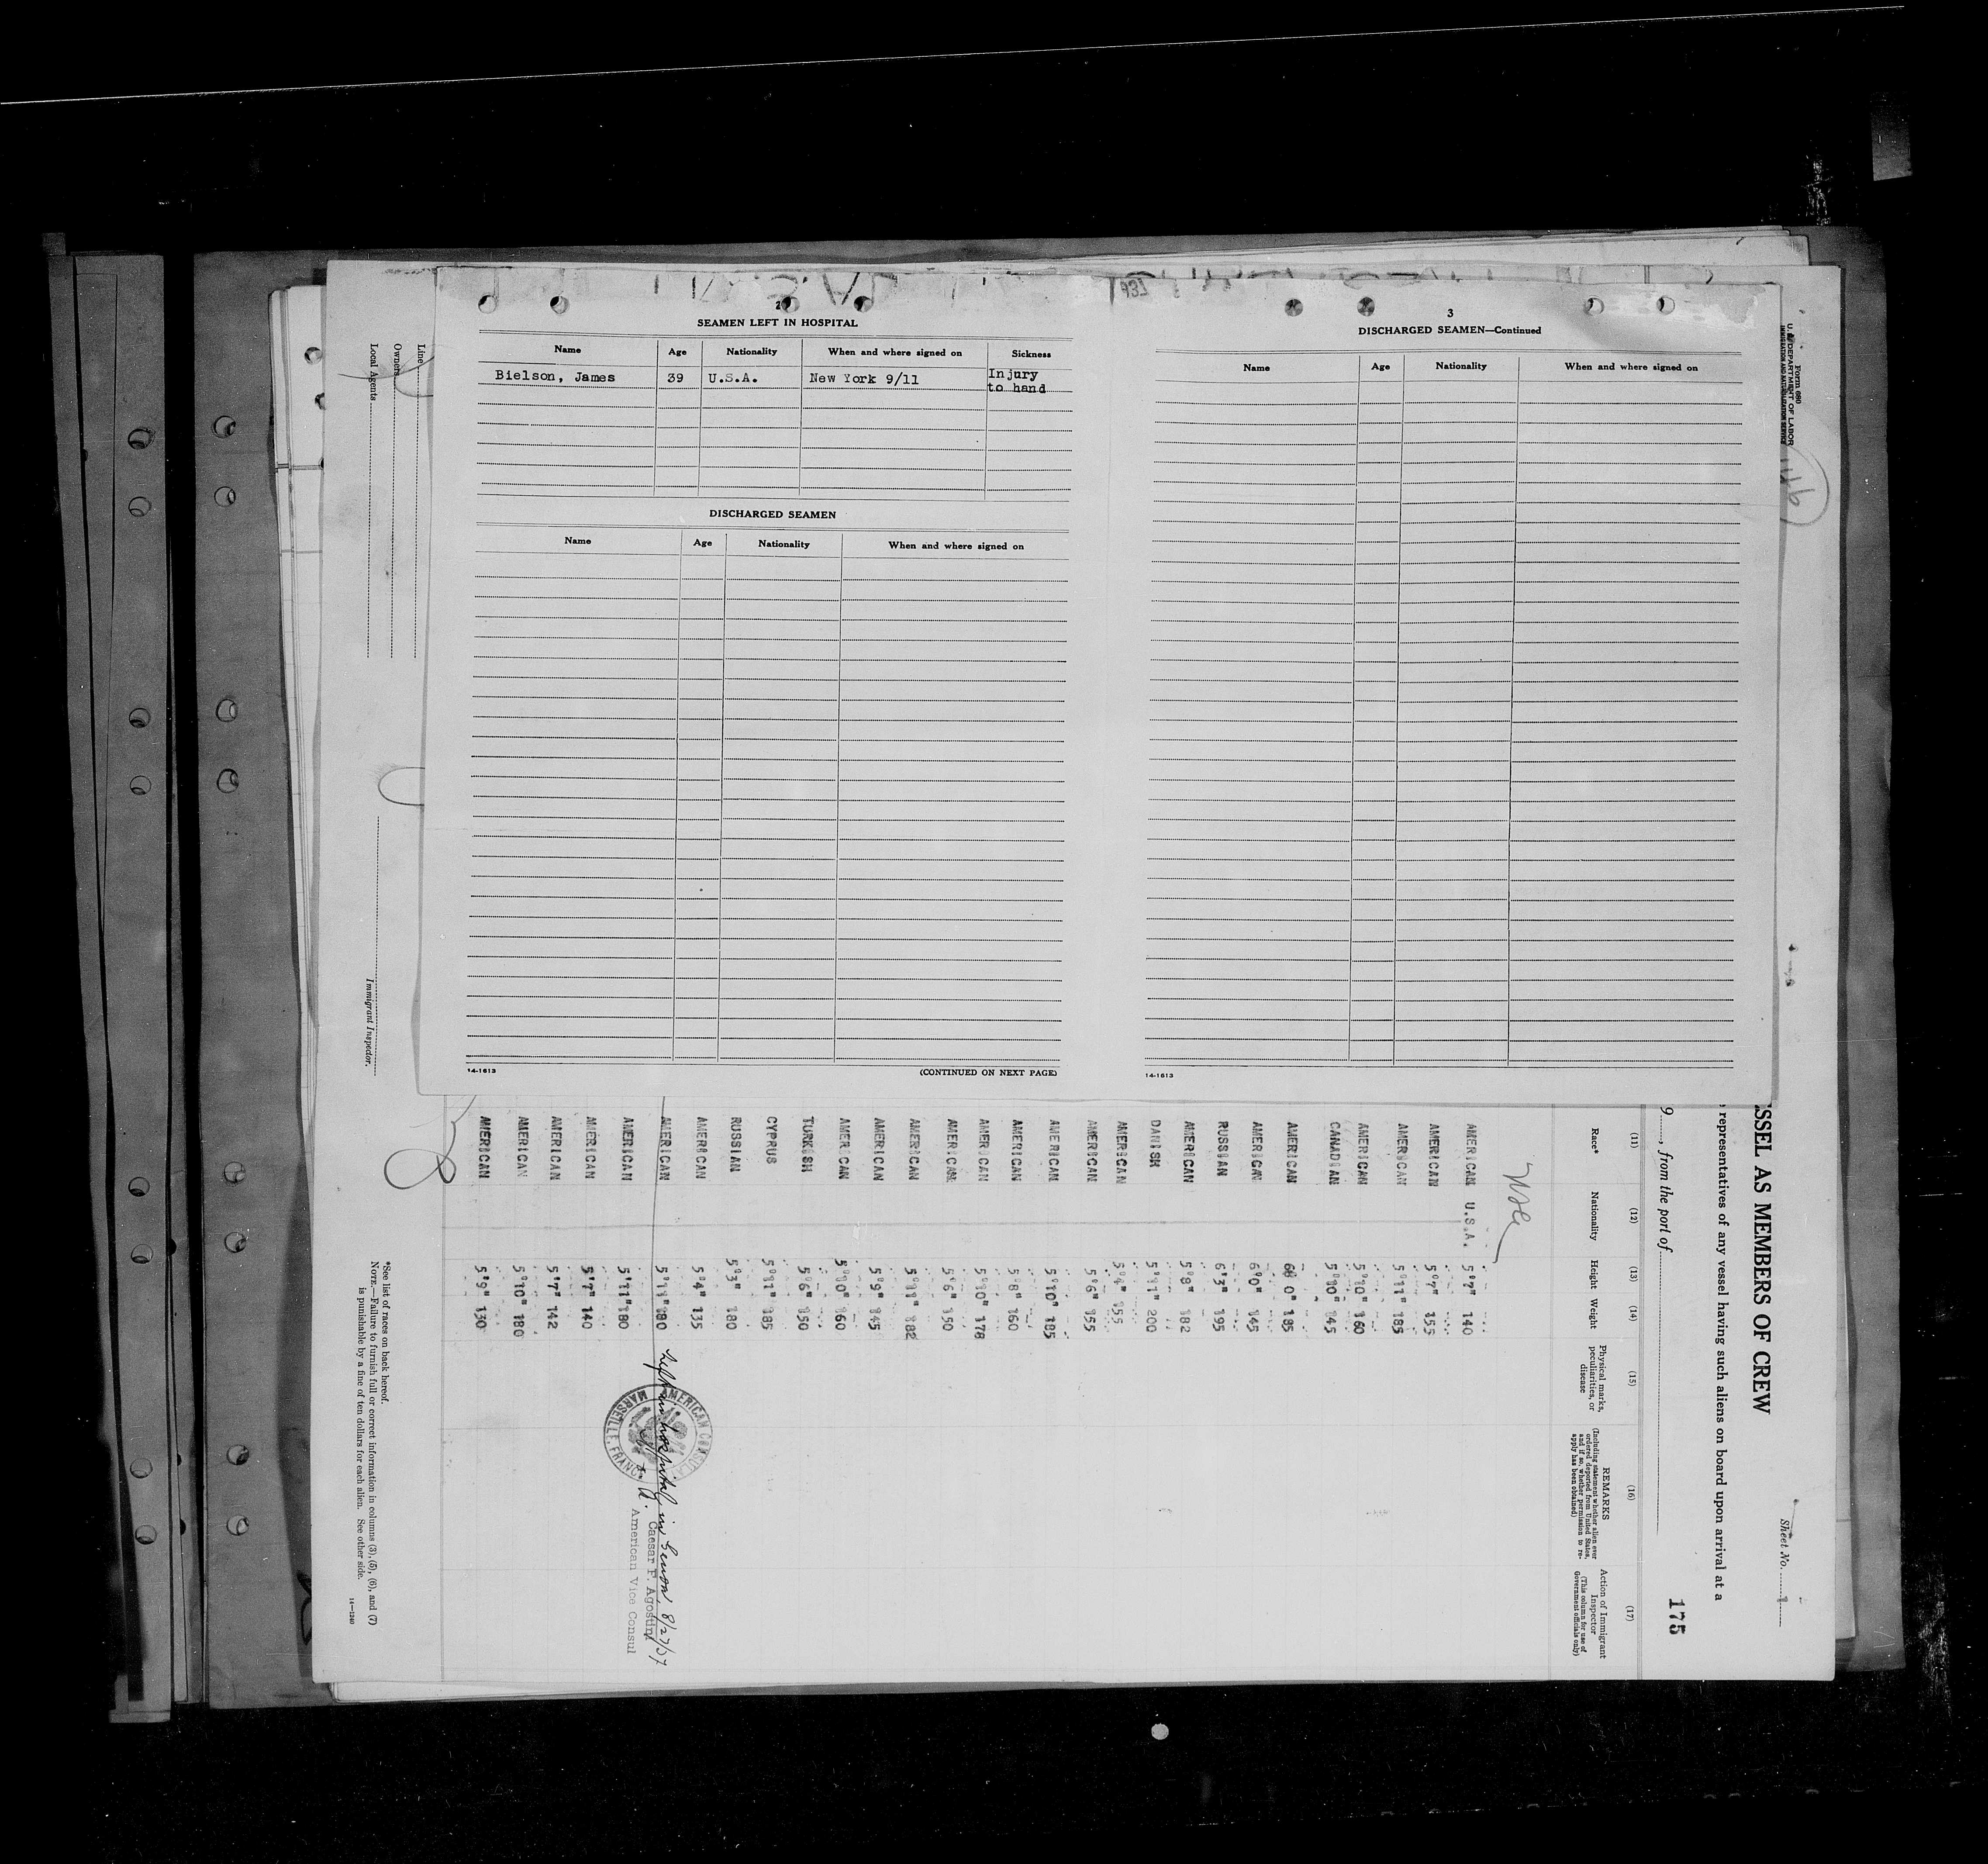 2
SEAMEN LEFT IN HOSPITAL
Name Age Nationality When and where signed on Sickness
Bielson, James 39 U.S.A. New York 9/11 Injury to hand
DISCHARGED SEAMEN
Name Age Nationality When and where signed on
14-1613 (CONTINUED ON NEXT PAGE)
3
DISCHARGED SEAMEN—Continued
Name Age Nationality When and where signed on
14-1613
Form 680
U. S. DEPARTMENT OF LABOR
IMMIGRATION AND NATURALIZATION SERVICE
Sheet No. 1
SSEL AS MEMBERS OF CREW
representatives of any vessel having such aliens on board upon arrival at a
9, from the port of
175
(11) (12) (13) (14) (15) (16) (17)
Race* Nationality Height Weight Physical marks, peculiarities, or disease REMARKS (Including statement whether alien ever ordered deported from United States, and if so, whether permission to re-apply has been obtained) Action of Immigrant Inspector (This column for use of Government officials only)
AMERICAN U.S.A. 5'7" 140
AMERICAN 5'7" 155
AMERICAN 5'11" 185
AMERICAN 5'10" 160
CANADIAN 5'10" 145
AMERICAN 6'0" 185
AMERICAN 6'0" 145
RUSSIAN 6'3" 195
AMERICAN 5'8" 182
DANISH 5'11" 200
AMERICAN 5'4" 155
AMERICAN 5'6" 155
AMERICAN 5'10" 185
AMERICAN 5'8" 160
AMERICAN 5'10" 178
AMERICAN 5'6" 150
AMERICAN 5'11" 182
AMERICAN 5'9" 145
AMERICAN 5'10" 160
TURKISH 5'6" 150
CYPRUS 5'11" 185
RUSSIAN 5'3" 180
AMERICAN 5'4" 135
AMERICAN 5'11" 180 Left in hospital in Genoa 8/27/37
AMERICAN 5'11" 180
AMERICAN 5'7" 140
AMERICAN 5'7" 142
AMERICAN 5'10" 180
AMERICAN 5'9" 130
AMERICAN CONSULA
MARSEILLE, FRANCE
Caesar P. Agostini
American Vice Consul
Line
Owners
Local Agents
Immigrant Inspector.
*See list of races on back hereof.
NOTE.—Failure to furnish full or correct information in columns (3), (5), (6), and (7)
is punishable by a fine of ten dollars for each alien. See other side.
14—1240